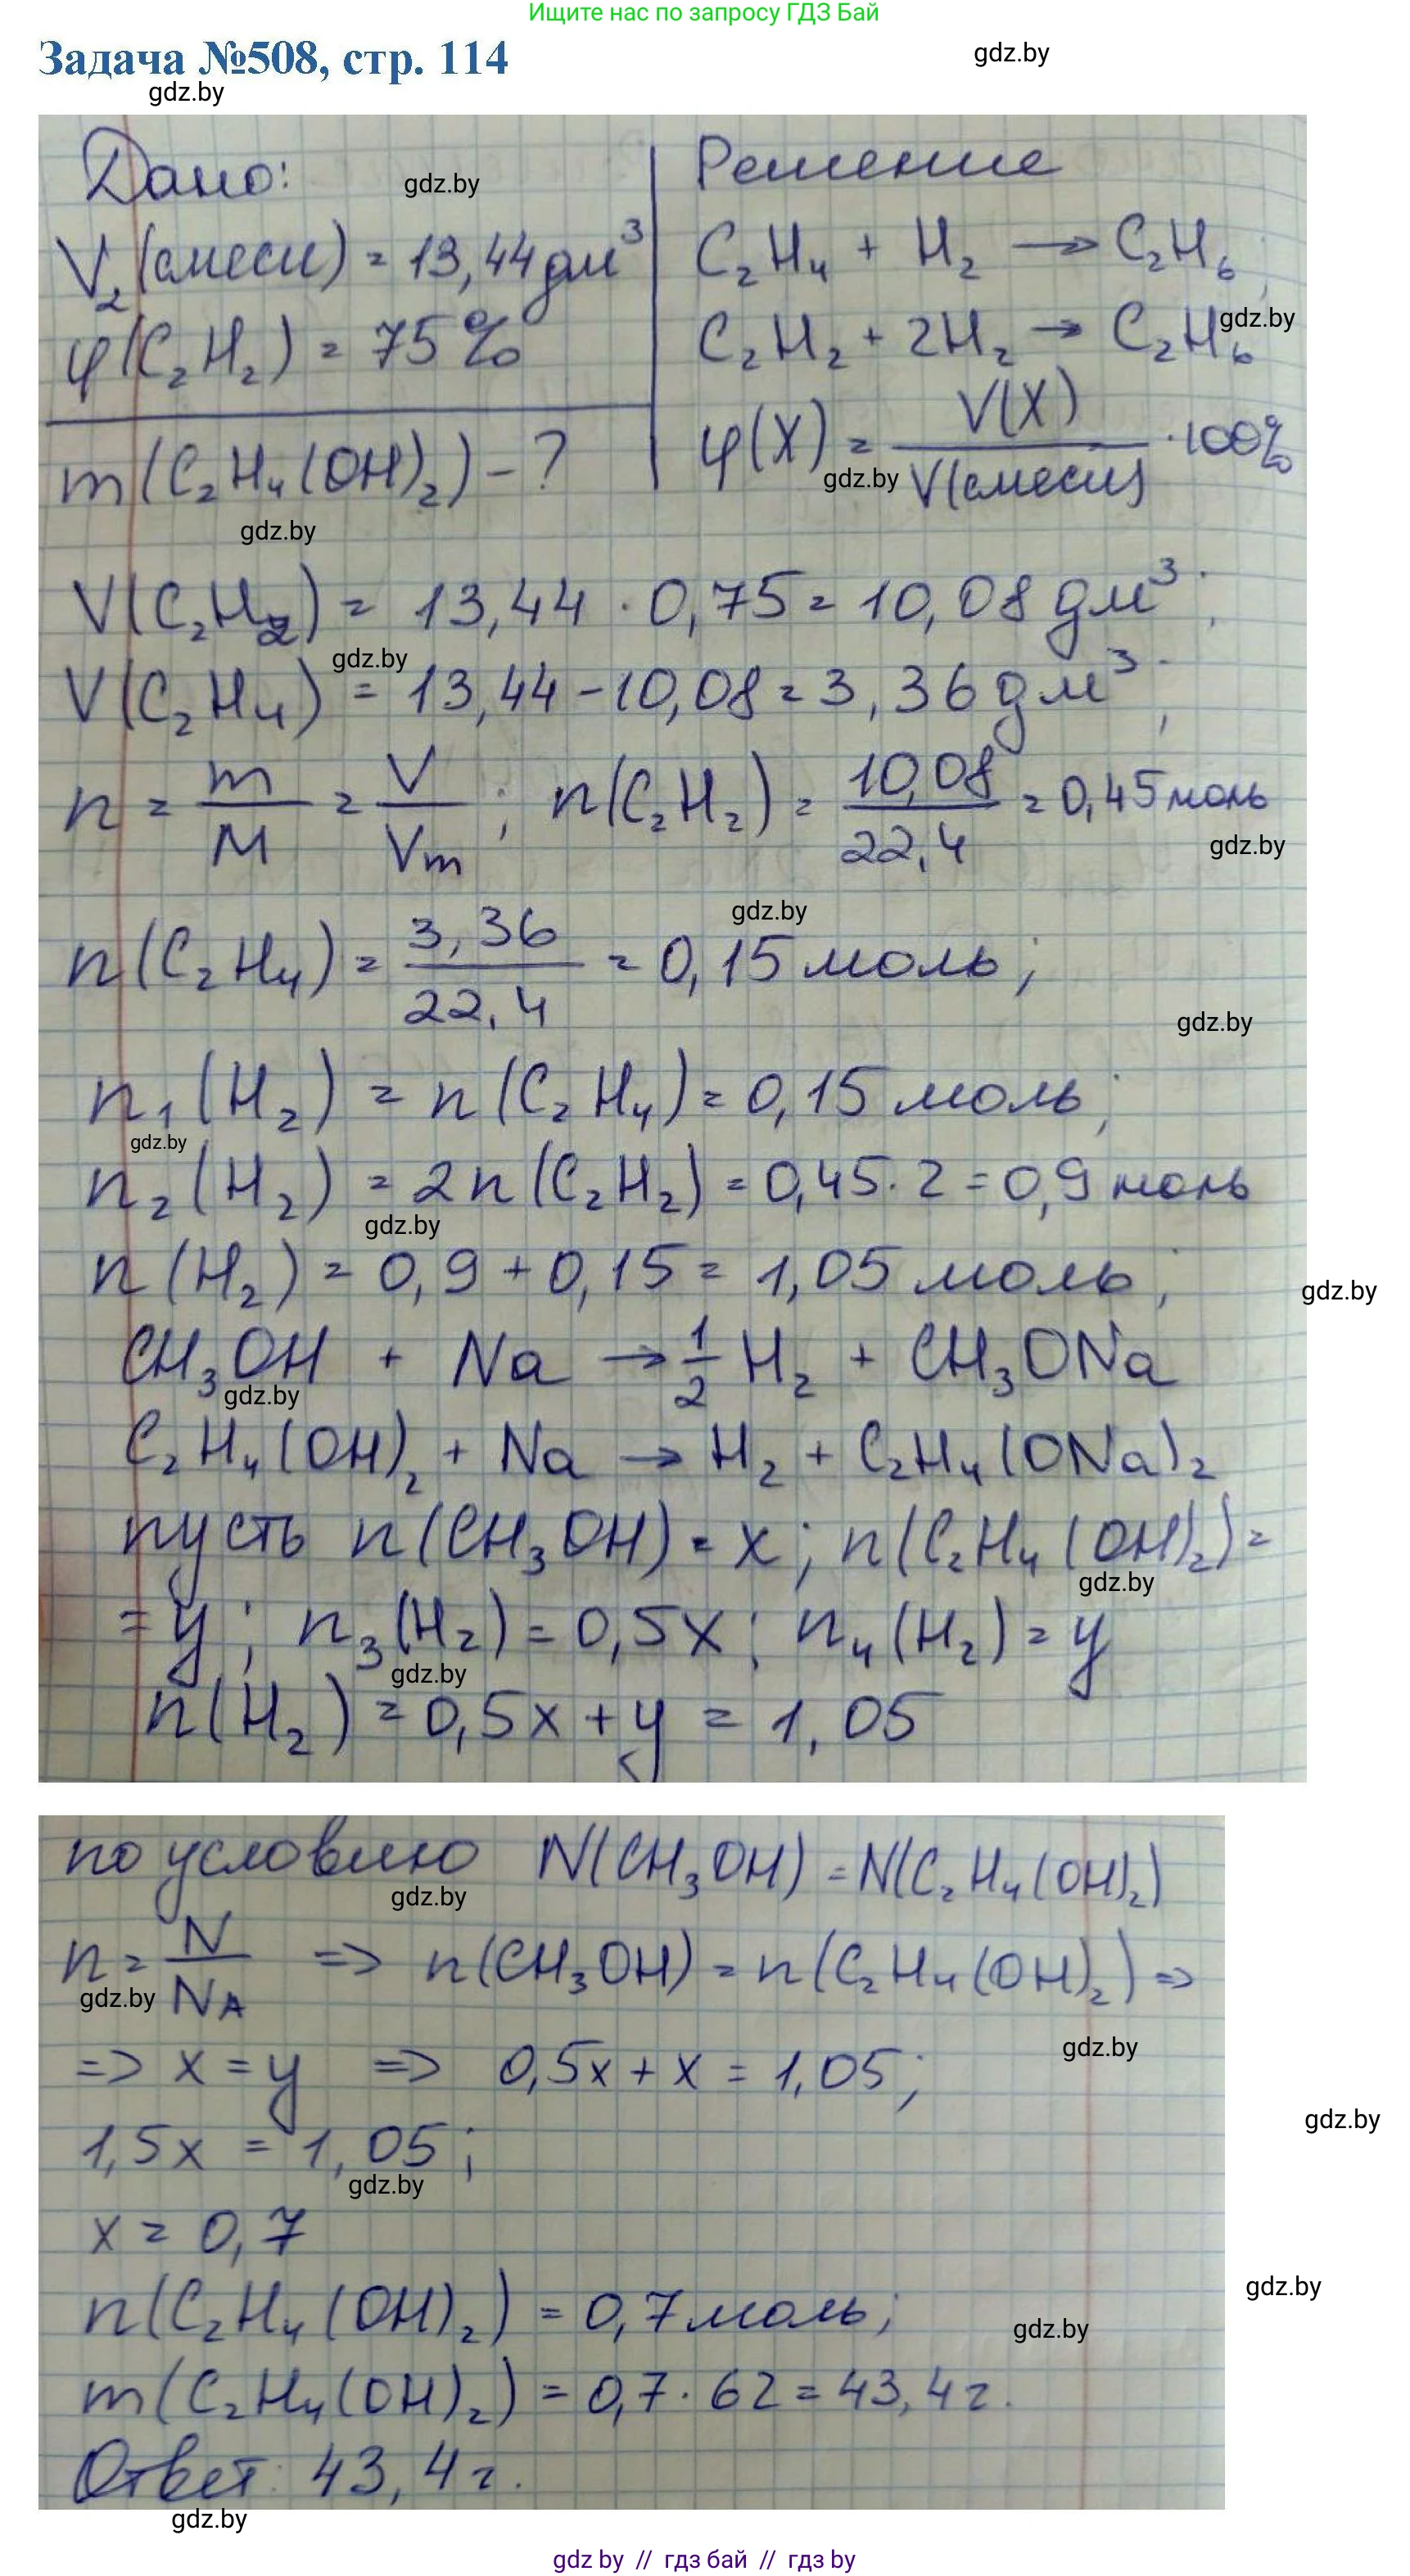 Ищите нас по запросу ГДЗ Бай
Задача №508, стр. 114
gdz.by
gdz.by
Дано:
gdz.by
V₂(смеси) = 13,44 дм³
φ(C₂H₂) = 75%
m(C₂H₄(OH)₂) - ?
gdz.by
Решение
C₂H₄ + H₂ → C₂H₆;
C₂H₂ + 2H₂ → C₂H₆
gdz.by
φ(X) = V(X)/V(смеси) · 100%
gdz.by
V(C₂H₂) = 13,44 · 0,75 = 10,08 дм³;
gdz.by
V(C₂H₄) = 13,44 - 10,08 = 3,36 дм³;
n = m/M = V/Vm; n(C₂H₂) = 10,08/22,4 = 0,45 моль
gdz.by
gdz.by
n(C₂H₄) = 3,36/22,4 = 0,15 моль;
gdz.by
n₁(H₂) = n(C₂H₄) = 0,15 моль;
gdz.by
n₂(H₂) = 2n(C₂H₂) = 0,45 · 2 = 0,9 моль
gdz.by
n(H₂) = 0,9 + 0,15 = 1,05 моль;
gdz.by
CH₃OH + Na → 1/2 H₂ + CH₃ONa
gdz.by
C₂H₄(OH)₂ + Na → H₂ + C₂H₄(ONa)₂
пусть n(CH₃OH) = x; n(C₂H₄(OH)₂) =
gdz.by
= y; n₃(H₂) = 0,5x; n₄(H₂) = y
gdz.by
n(H₂) = 0,5x + y = 1,05
по условию N(CH₃OH) = N(C₂H₄(OH)₂)
gdz.by
n = N/NA => n(CH₃OH) = n(C₂H₄(OH)₂) =>
gdz.by
gdz.by
=> x = y => 0,5x + x = 1,05;
gdz.by
1,5x = 1,05;
gdz.by
x = 0,7
gdz.by
n(C₂H₄(OH)₂) = 0,7 моль;
gdz.by
m(C₂H₄(OH)₂) = 0,7 · 62 = 43,4 г.
Ответ: 43,4 г.
gdz.by
gdz by // гдз бай // гдз by